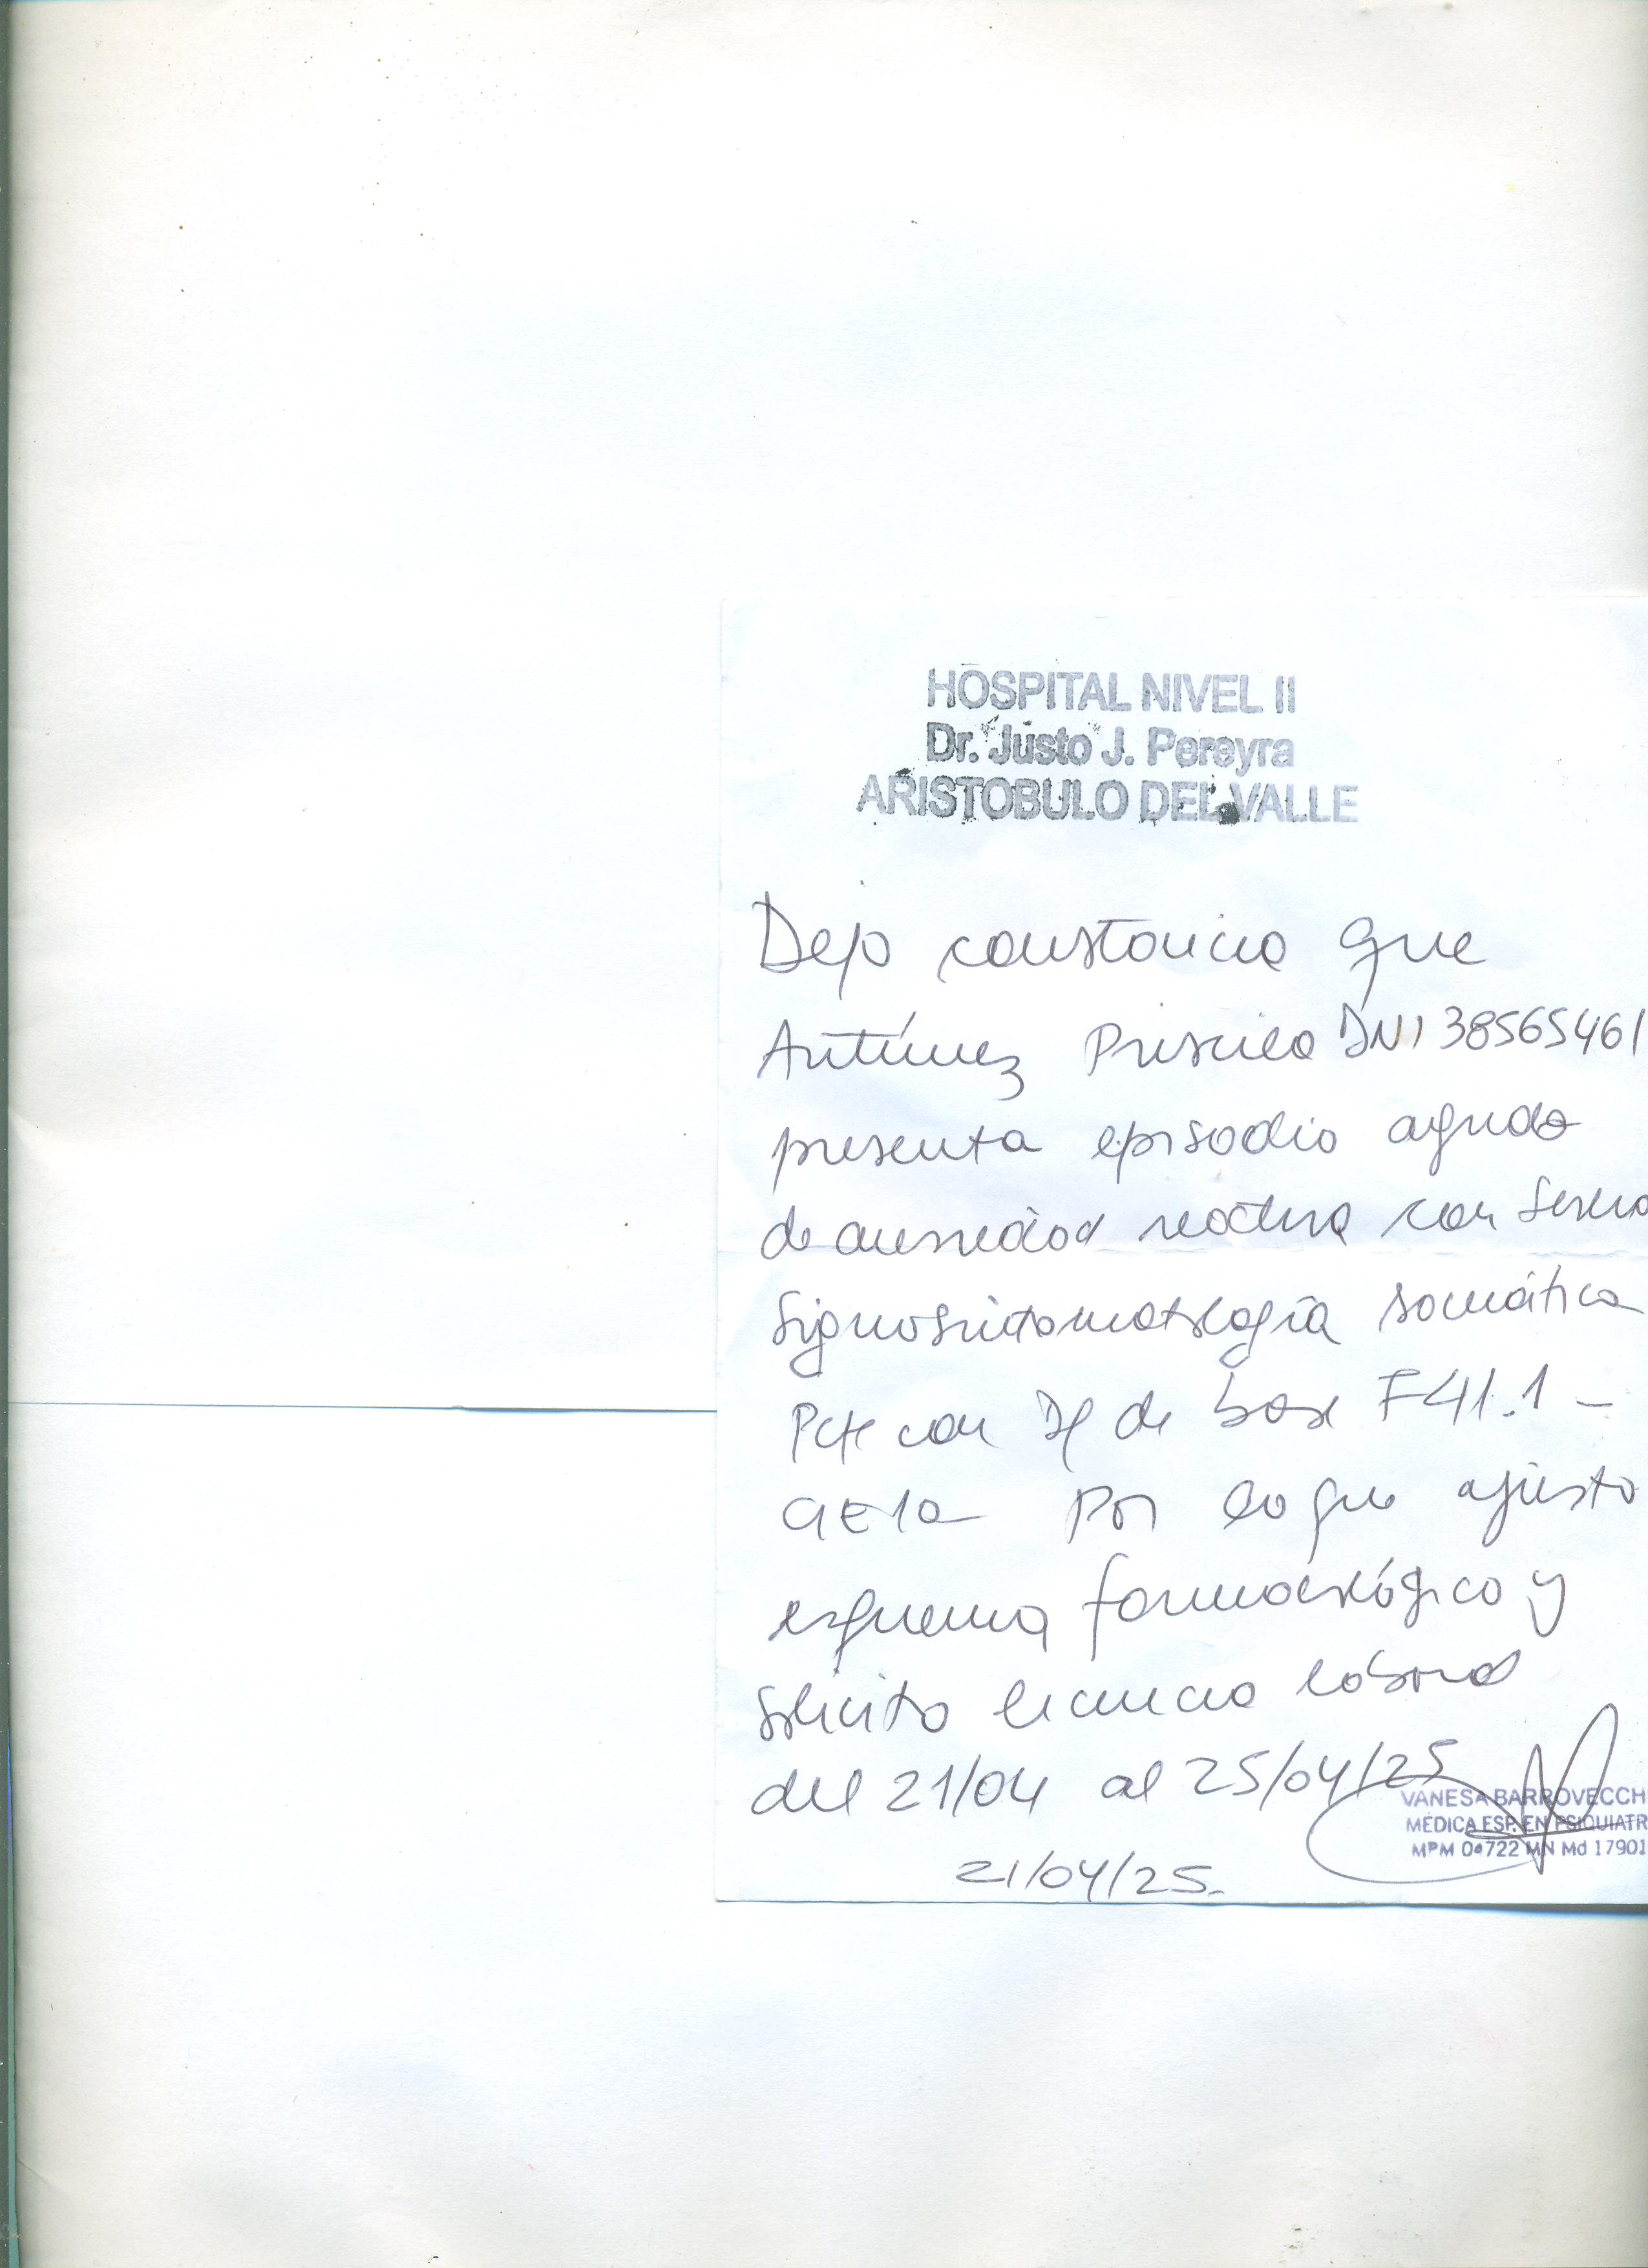 HOSPITAL NIVEL II
Dr. Justo J. Pereyra
ARISTOBULO DEL VALLE
Dejo constancia que
Antúnez Priscila DNI 38565461
presenta episodio agudo
de ansiedad reactiva con severa
signosintomatología somática
Pcte con Dg de base F41.1 -
CIE10 Por lo que ajusto
esquema farmacológico y
solicito licencia laboral
del 21/04 al 25/04/25
VANESA BARROVECCH
MÉDICA ESP. EN PSIQUIATR
MPM 0 722 MN Md 17901
21/04/25.